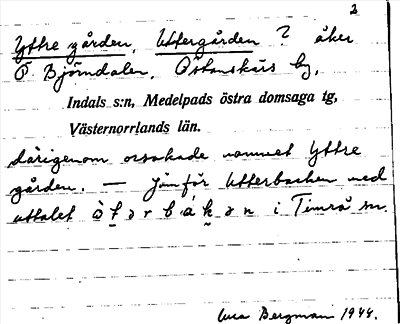 2
Yttre gården, Uttergården? åker
P. Björndalen, Östanskärs by,
Indals s:n, Medelpads östra domsaga tg,
Västernorrlands län.
därigenom orsakade namnet Yttre
gården. — Jämför Utterbacken med
uttalet i Timrå sn.
Bergman 1944.